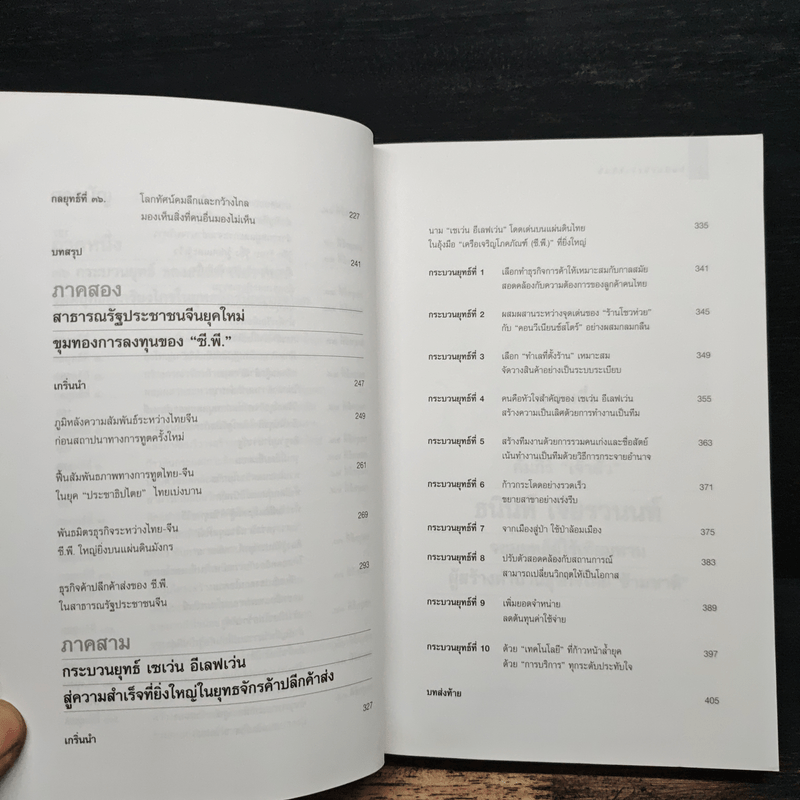 กลยุทธ์ที่ ๓๖. โลกทัศน์คมลึกและกว้างไกล
มองเห็นสิ่งที่คนอื่นมองไม่เห็น 227
บทสรุป 241
ภาคสอง
สาธารณรัฐประชาชนจีนยุคใหม่
ขุมทองการลงทุนของ "ซี.พี."
เกริ่นนำ 247
ภูมิหลังความสัมพันธ์ระหว่างไทยจีน 249
ก่อนสถาปนาทางการทูตครั้งใหม่
ฟื้นสัมพันธภาพทางการทูตไทย-จีน 261
ในยุค "ประชาธิปไตย" ไทยเบ่งบาน
พันธมิตรธุรกิจระหว่างไทย-จีน 269
ซี.พี. ใหญ่ยิ่งบนแผ่นดินมังกร
ธุรกิจค้าปลีกค้าส่งของ ซี.พี. 293
ในสาธารณรัฐประชาชนจีน
ภาคสาม
กระบวนยุทธ์ เซเว่น อีเลฟเว่น
สู่ความสำเร็จที่ยิ่งใหญ่ในยุทธจักรค้าปลีกค้าส่ง
เกริ่นนำ 327
นาม "เซเว่น อีเลฟเว่น" โดดเด่นบนแผ่นดินไทย 335
ในอุ้งมือ "เครือเจริญโภคภัณฑ์ (ซี.พี.)" ที่ยิ่งใหญ่
กระบวนยุทธ์ที่ 1 เลือกทำธุรกิจการค้าให้เหมาะสมกับกาลสมัย 341
สอดคล้องกับความต้องการของลูกค้าคนไทย
กระบวนยุทธ์ที่ 2 ผสมผสานระหว่างจุดเด่นของ "ร้านโชวห่วย" 345
กับ "คอนวีเนียนซ์สโตร์" อย่างผสมกลมกลืน
กระบวนยุทธ์ที่ 3 เลือก "ทำเลที่ตั้งร้าน" เหมาะสม 349
จัดวางสินค้าอย่างเป็นระบบระเบียบ
กระบวนยุทธ์ที่ 4 คนคือหัวใจสำคัญของ เซเว่น อีเลฟเว่น 355
สร้างความเป็นเลิศด้วยการทำงานเป็นทีม
กระบวนยุทธ์ที่ 5 สร้างทีมงานด้วยการรวมคนเก่งและซื่อสัตย์ 363
เน้นทำงานเป็นทีมด้วยวิธีการกระจายอำนาจ
กระบวนยุทธ์ที่ 6 ก้าวกระโดดอย่างรวดเร็ว 371
ขยายสาขาอย่างเร่งรีบ
กระบวนยุทธ์ที่ 7 จากเมืองสู่ป่า ใช้ป่าล้อมเมือง 375
กระบวนยุทธ์ที่ 8 ปรับตัวสอดคล้องกับสถานการณ์ 383
สามารถเปลี่ยนวิกฤตให้เป็นโอกาส
กระบวนยุทธ์ที่ 9 เพิ่มยอดจำหน่าย 389
ลดต้นทุนค่าใช้จ่าย
กระบวนยุทธ์ที่ 10 ด้วย "เทคโนโลยี" ที่ก้าวหน้าล้ำยุค 397
ด้วย "การบริการ" ทุกระดับประทับใจ
บทส่งท้าย 405